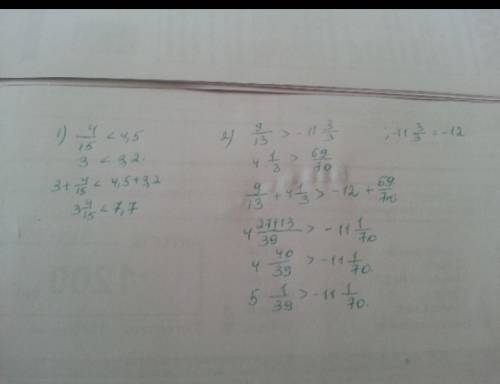 1) 4/15 < 4,5
3 < 3,2.
3+4/15 < 4,5+3,2
3 4/15 < 7,7
2) 9/13 > -11 3/3 ; -11 3/3 = -12
4 1/3 > 69/70
9/13 + 4 1/3 > -12 + 69/70
4 27+13/39 > -11 1/70
4 40/39 > -11 1/70.
5 1/39 > -11 1/70.